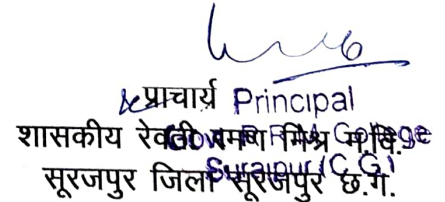 प्राचार्य Principal
शासकीय रेवती रमण मिश्र म.वि.
Govt. R.R.M. College
सूरजपुर जिला सूरजपुर छ.ग.
Surajpur (C.G.)